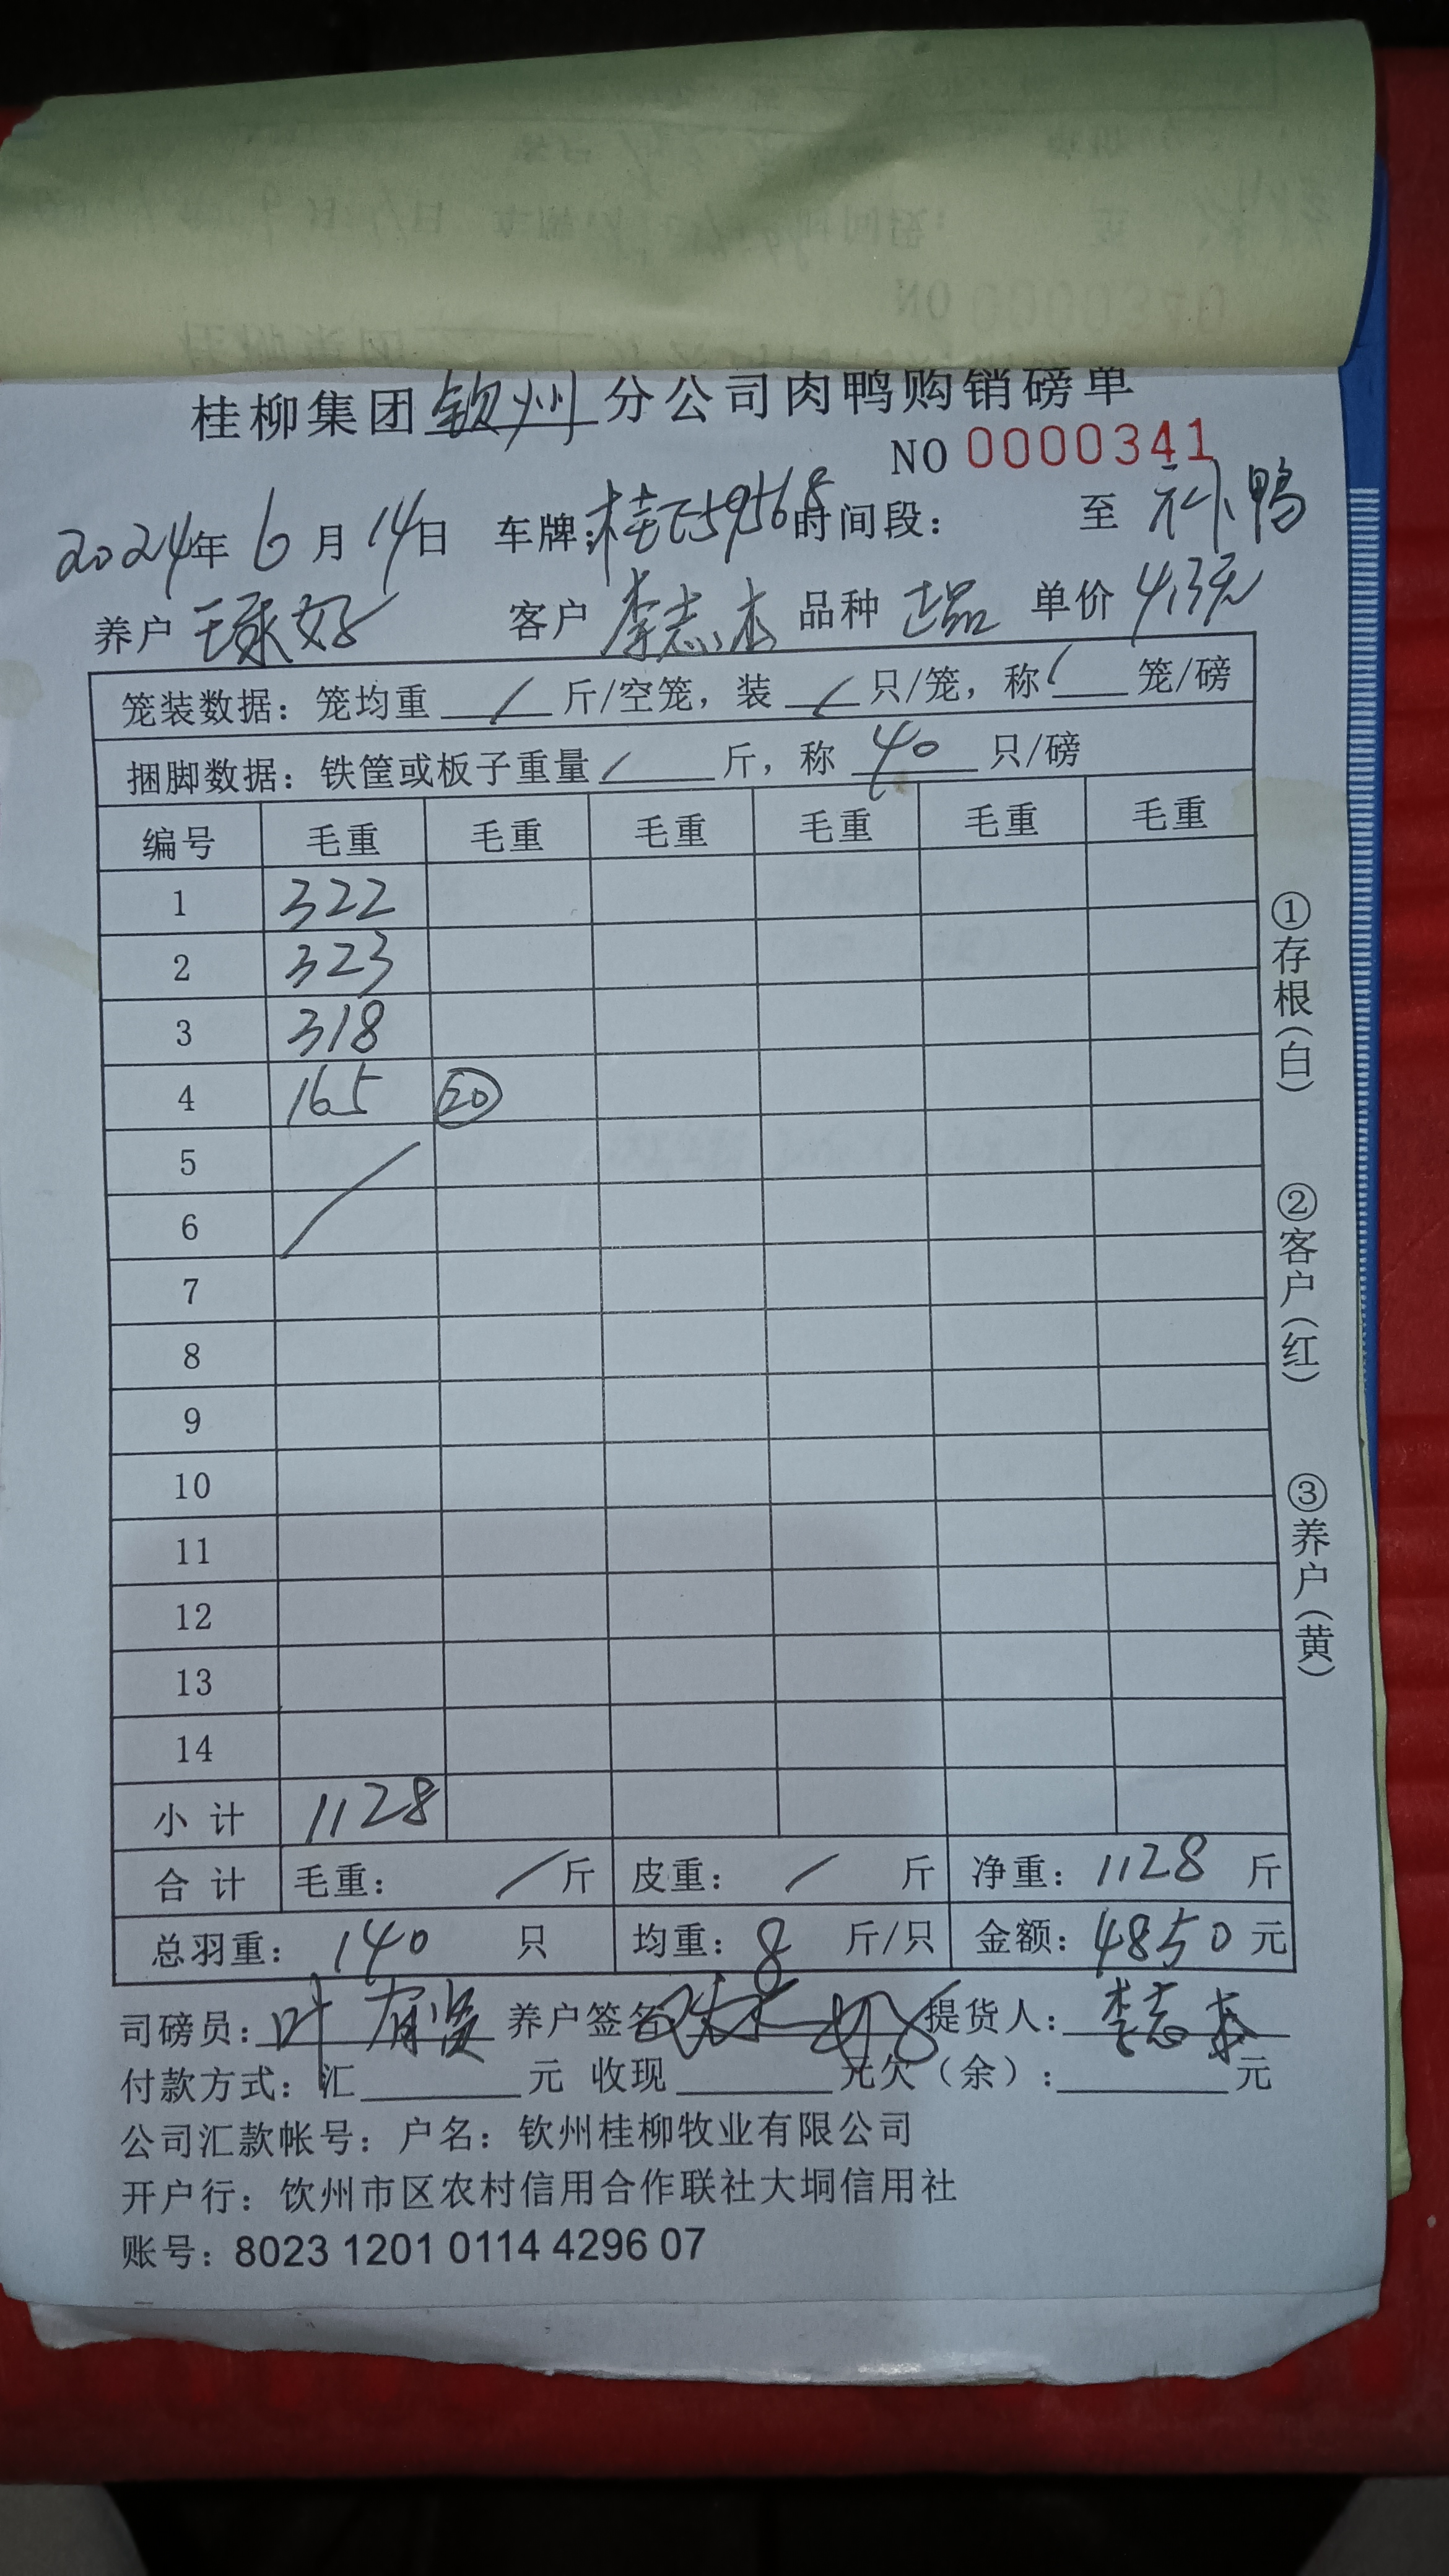 NO 0000340
桂柳集团钦州分公司肉鸭购销磅单
NO 0000341
2024年6月14日 车牌:桂E59568 时间段: 至 补鸭
养户 客户 李志杰 品种 正品 单价 4.3元
笼装数据：笼均重 / 斤/空笼，装 / 只/笼，称 / 笼/磅
捆脚数据：铁筐或板子重量 / 斤，称 40 只/磅
编号 毛重 毛重 毛重 毛重 毛重 毛重
1 322
2 323
3 318
4 165 20
5
6
7
8
9
10
11
12
13
14
小计 1128
合计 毛重： / 斤 皮重： / 斤 净重：1128 斤
总羽重：140 只 均重：8 斤/只 金额：4850 元
司磅员：叶有贤 养户签名 提货人：李志杰
付款方式：汇 元 收现 元欠（余）： 元
公司汇款帐号：户名：钦州桂柳牧业有限公司
开户行：钦州市区农村信用合作联社大垌信用社
账号：8023 1201 0114 4296 07
①存根(白)
②客户(红)
③养户(黄)